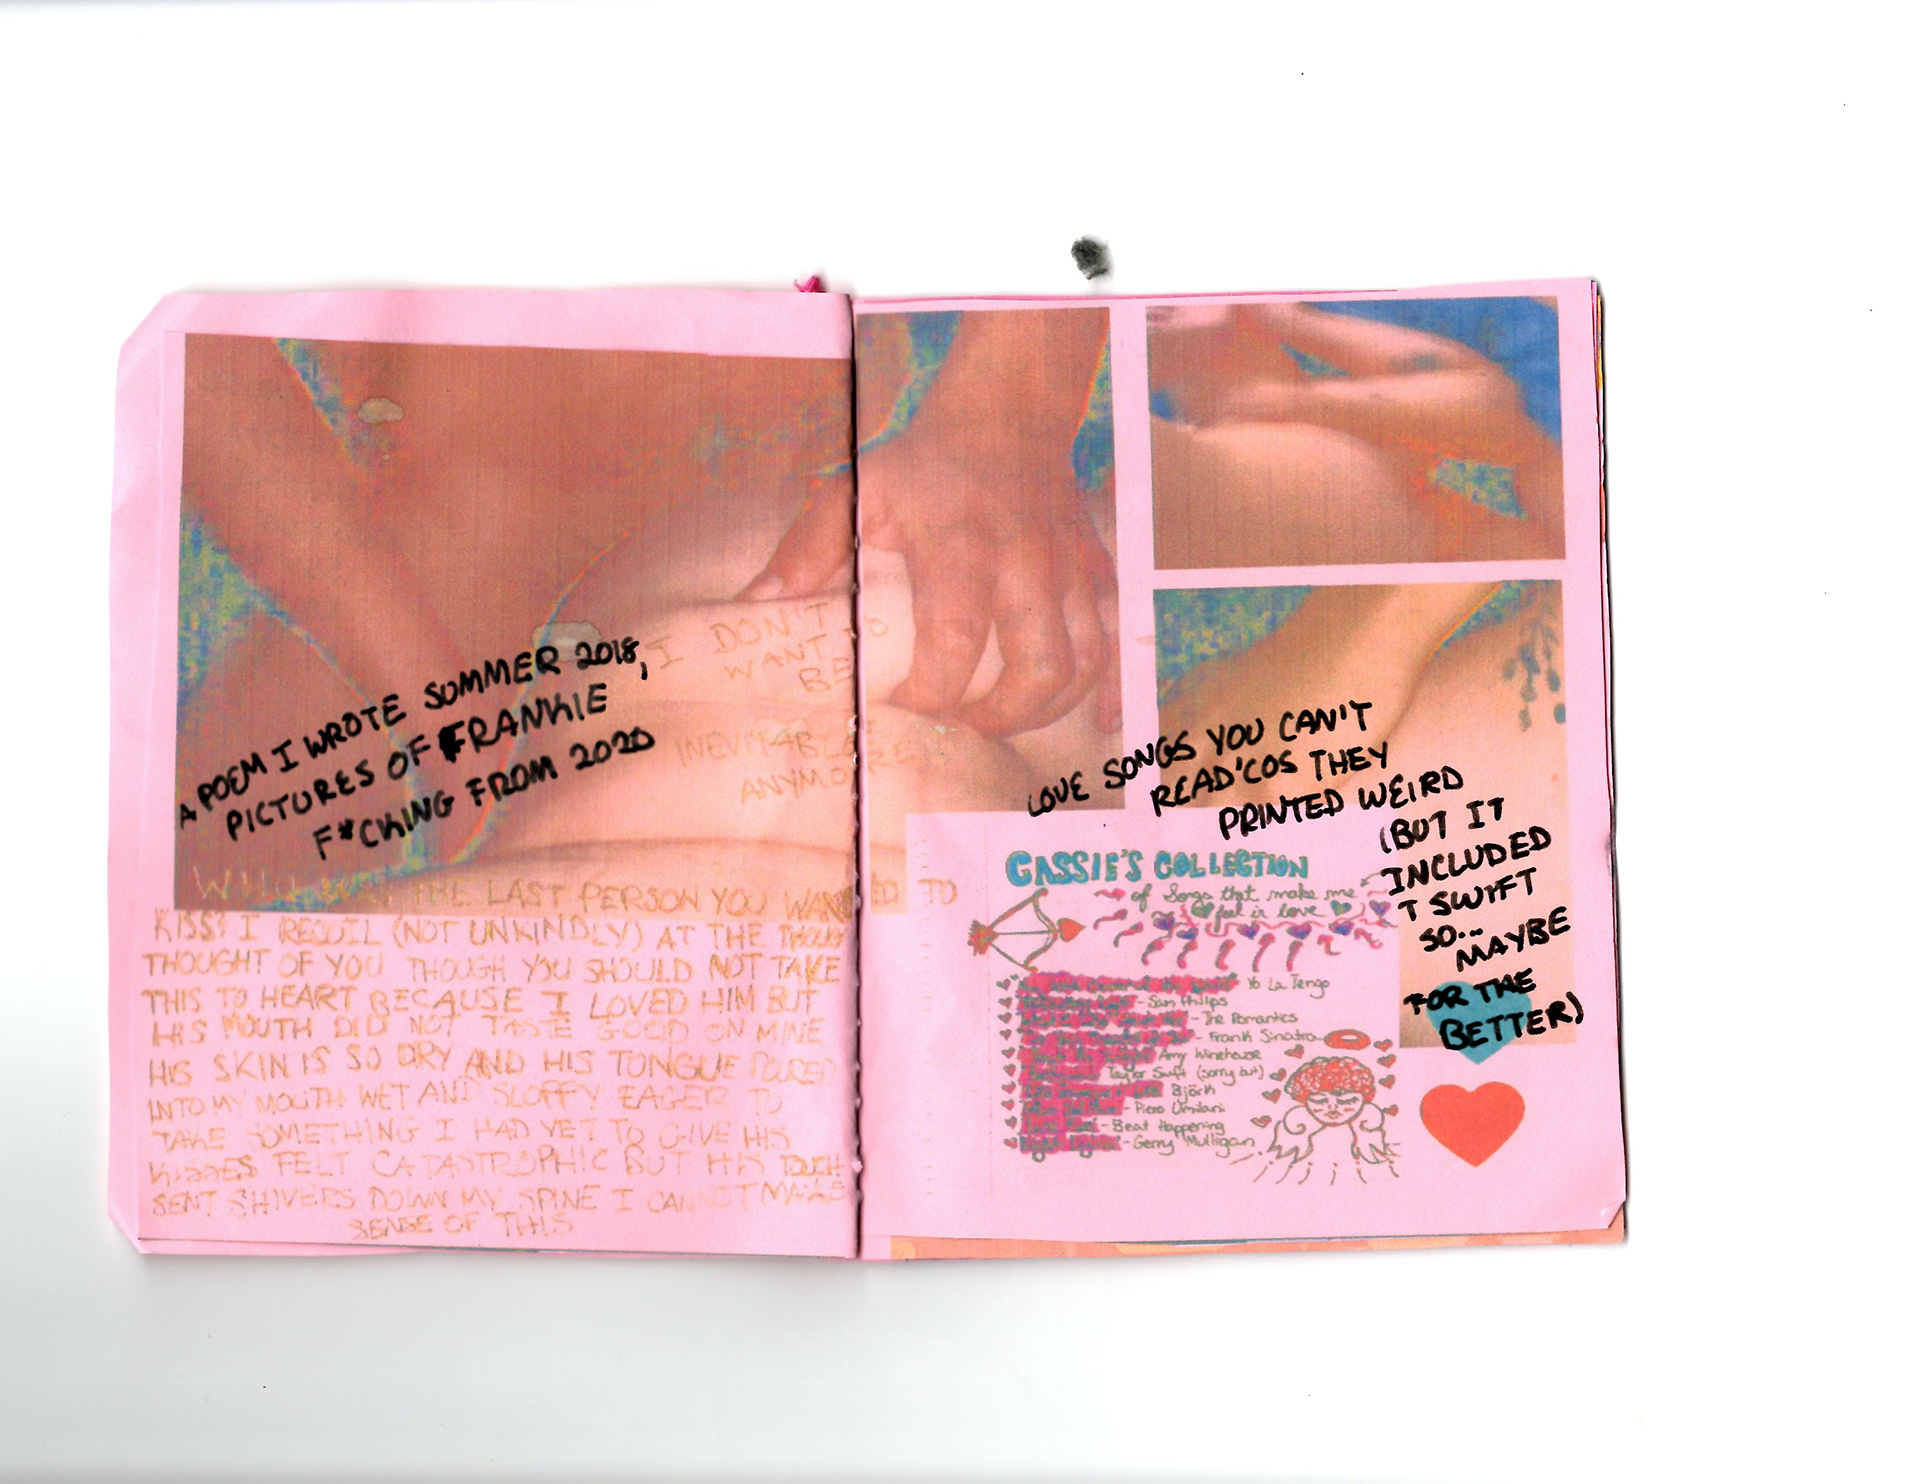 A POEM I WROTE SUMMER 2018,
PICTURES OF FRANKIE
F*CKING FROM 2020
I DON'T
WANT TO
BE
INEVITABLE
ANYMORE
WHO WAS THE LAST PERSON YOU WANTED TO
KISS? I RECOIL (NOT UNKINDLY) AT THE
THOUGHT OF YOU THOUGH YOU SHOULD NOT TAKE
THIS TO HEART BECAUSE I LOVED HIM BUT
HIS MOUTH DID NOT TASTE GOOD ON MINE
HIS SKIN IS SO DRY AND HIS TONGUE POURED
INTO MY MOUTH WET AND SLOPPY EAGER TO
TAKE SOMETHING I HAD YET TO GIVE HIS
KISSES FELT CATASTROPHIC BUT HIS TOUCH
SENT SHIVERS DOWN MY SPINE I CANNOT MAKE
SENSE OF THIS
LOVE SONGS YOU CAN'T
READ 'COS THEY
PRINTED WEIRD
(BUT IT
INCLUDED
T SWIFT
SO...
MAYBE
FOR THE
BETTER)
CASSIE'S COLLECTION
of Songs that make me
feel in love
Yo La Tengo
- Sam Philips
- The Romantics
- Frank Sinatra
Amy Winehouse
Taylor Swift (sorry but)
Björk
- Piero Umiliani
- Beat Happening
- Gerry Mulligan